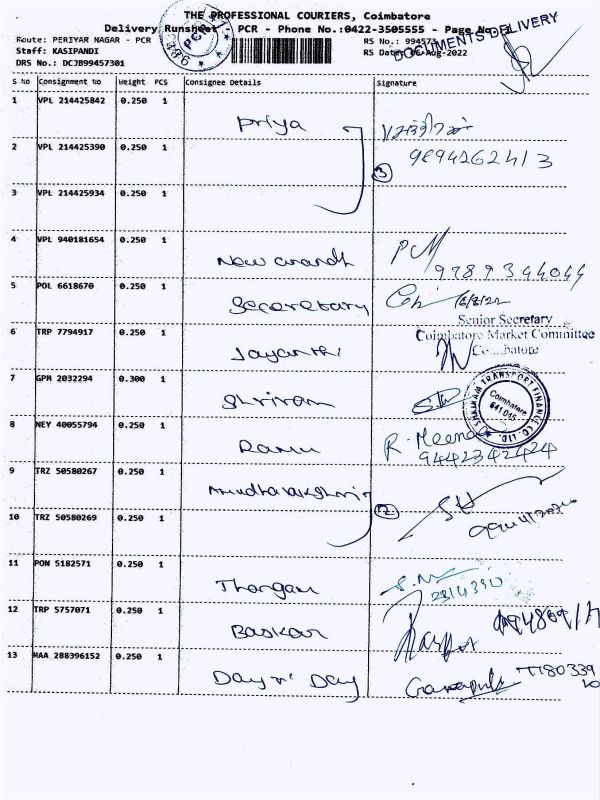 THE PROFESSIONAL COURIERS, Coimbatore
Delivery Runsheet PCR - Phone No.:0422-3505555 - Page No.
Route: PERIYAR NAGAR - PCR RS No.: 994573
DOCUMENTS DELIVERY
Staff: KASIPANDI RS Date: 06-Aug-2022
DRS No.: DCJB99457301
S No Consignment No Weight PCS Consignee Details Signature
1 VPL 214425842 0.250 1 Priya
2 VPL 214425390 0.250 1 9894262413
3
3 VPL 214425934 0.250 1
4 VPL 940181654 0.250 1 New anandh PM
9789344044
5 POL 6618670 0.250 1 Seceretary
Senior Secretary
Coimbatore Market Committee
Coimbatore
6 TRP 7794917 0.250 1 Jayanthi
7 GPM 2032294 0.300 1 Shriram
SHRIRAM TRANSPORT FINANCE CO. LTD.
Coimbatore
641 045
8 NEY 40055794 0.250 1 Ramu R. Meena
9442342424
9 TRZ 50580267 0.250 1
2
10 TRZ 50580269 0.250 1
11 PON 5182571 0.250 1 Thangam
2814390
12 TRP 5757071 0.250 1 Baskar
13 MAA 288396152 0.250 1 Day n' Day